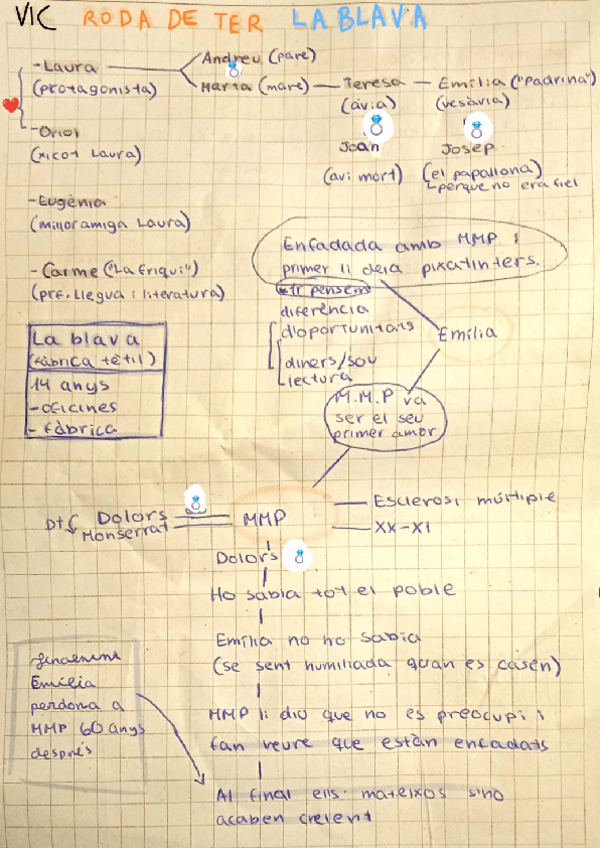 VIC RODA DE TER LA BLAVA
-Laura
(protagonista)
Andreu (pare)
Marta (mare) — Teresa — Emília ("Padrina")
(àvia) (vesàvia)
Joan Josep
(avi mort) (el papallona)
perquè no era fiel
-Oriol
(xicot Laura)
-Eugènia
(millor amiga Laura)
-Carme ("La friqui")
(prf. Llegua i literatura)
La blava
(fàbrica tèxtil)
14 anys
-oficines
-fàbrica
Enfadada amb MMP i
primer li deia pixatinters.
pensem
diferència
d'oportunitats
diners/sou
lectura
Emília
M.M.P va
ser el seu
primer amor
Dolors
Monserrat
MMP
Esclerosi múltiple
XX-XI
Dolors
Ho sabia tot el poble
Emília no ho sabia
(se sent humiliada quan es casen)
MMP li diu que no es preocupi i
fan veure que estàn enfadats
Al final ells mateixos sino
acaben creient
finalment
Emília
perdona a
MMP 60 anys
després